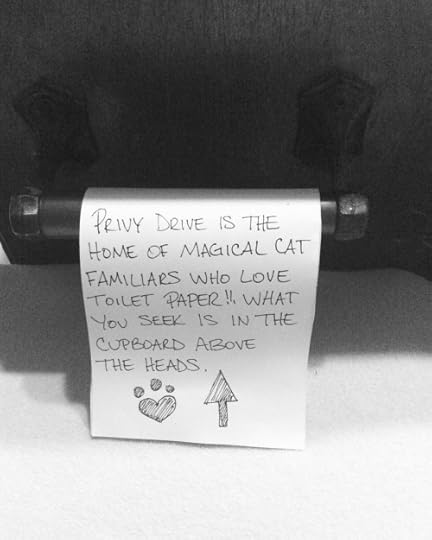 PRIVY DRIVE IS THE
HOME OF MAGICAL CAT
FAMILIARS WHO LOVE
TOILET PAPER!! WHAT
YOU SEEK IS IN THE
CUPBOARD ABOVE
THE HEADS.